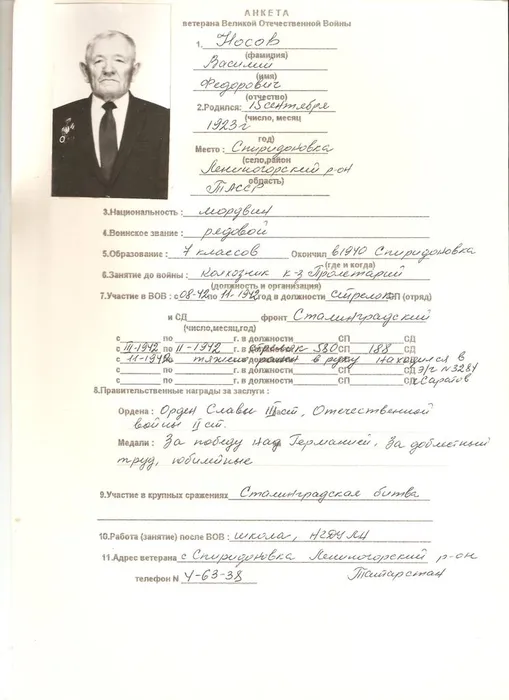 АНКЕТА
ветерана Великой Отечественной Войны
1. Носов
(фамилия)
Василий
(имя)
Федорович
(отчество)
2.Родился: 15 сентября
(число, месяц
1923 г
год)
Место : Спиридоновка
(село,район
Лениногорский р-он
область)
ТАССР
3.Национальность : мордвин
4.Воинское звание : редовой
5.Образование : 7 классов Окончил в1940 Спиридоновка
(где и когда)
6.Занятие до войны : колхозник к-з Пролетарий
(должность и организация)
7.Участие в ВОВ : с 08-42 по 11-1942 год в должности Стрелок СП (отряд)
и СД фронт Сталинградский
(число,месяц,год)
с по г. в должности СП СД
с III-1942 по 11-1942 г. в должности 580 СП 188 СД
с 11-1942 тяжело ранен в руку находился в
с по г. в должности СП СД Э/г N3287
с по г. в должности СП СД г.Саратов
8.Правительственные награды за заслуги :
Ордена : Орден Славы III ст, Отечественной
войны II ст.
Медали : За победу над Германией, За доблестный
труд, юбилейные
9.Участие в крупных сражениях Сталинградская битва
10.Работа (занятие) после ВОВ : школа,
11.Адрес ветерана с Спиридоновка Лениногорский р-он
телефон N 4-63-38 Татарстан